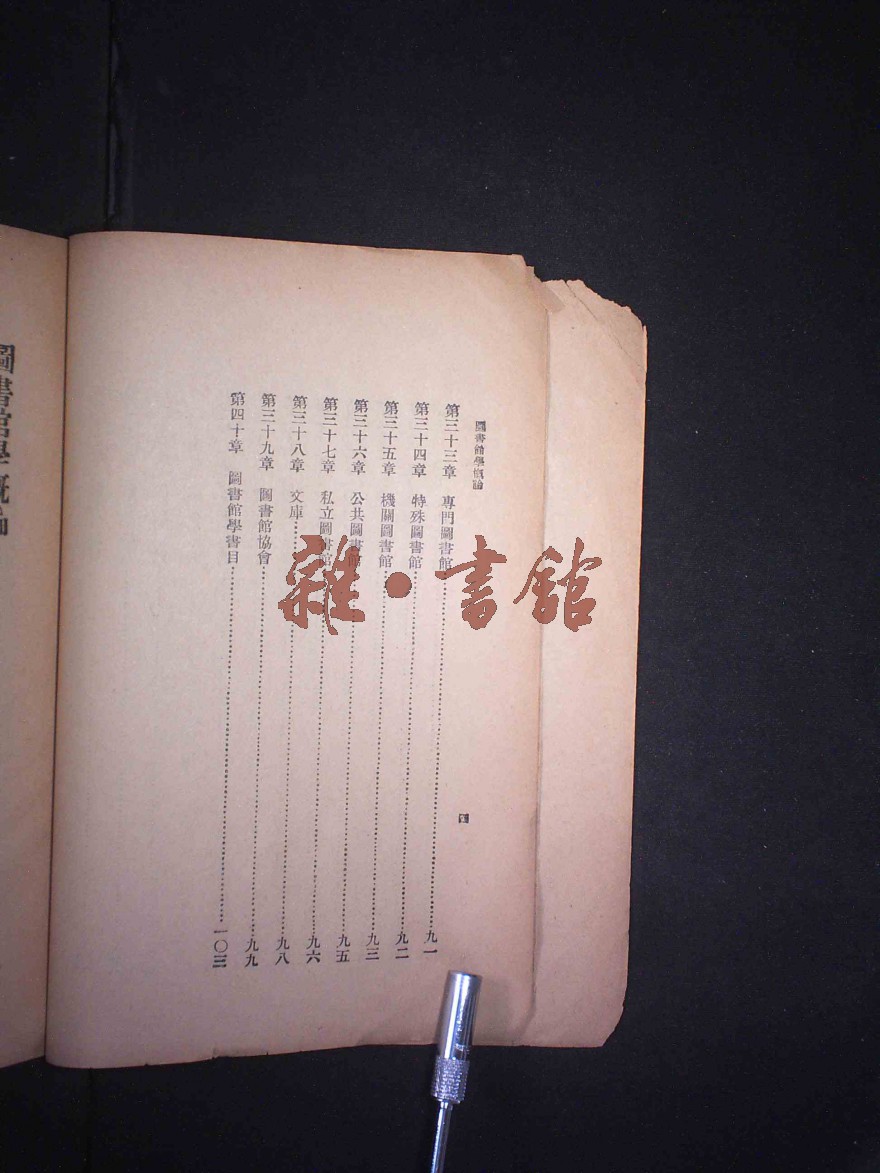 圖書館學概論
第三十三章 專門圖書館……九一
第三十四章 特殊圖書館……九二
第三十五章 機關圖書館……九三
第三十六章 公共圖書館……九五
第三十七章 私立圖書館……九六
第三十八章 文庫……九八
第三十九章 圖書館協會……九九
第四十章 圖書館學書目……一〇三
雜·書館
圖書館學概論